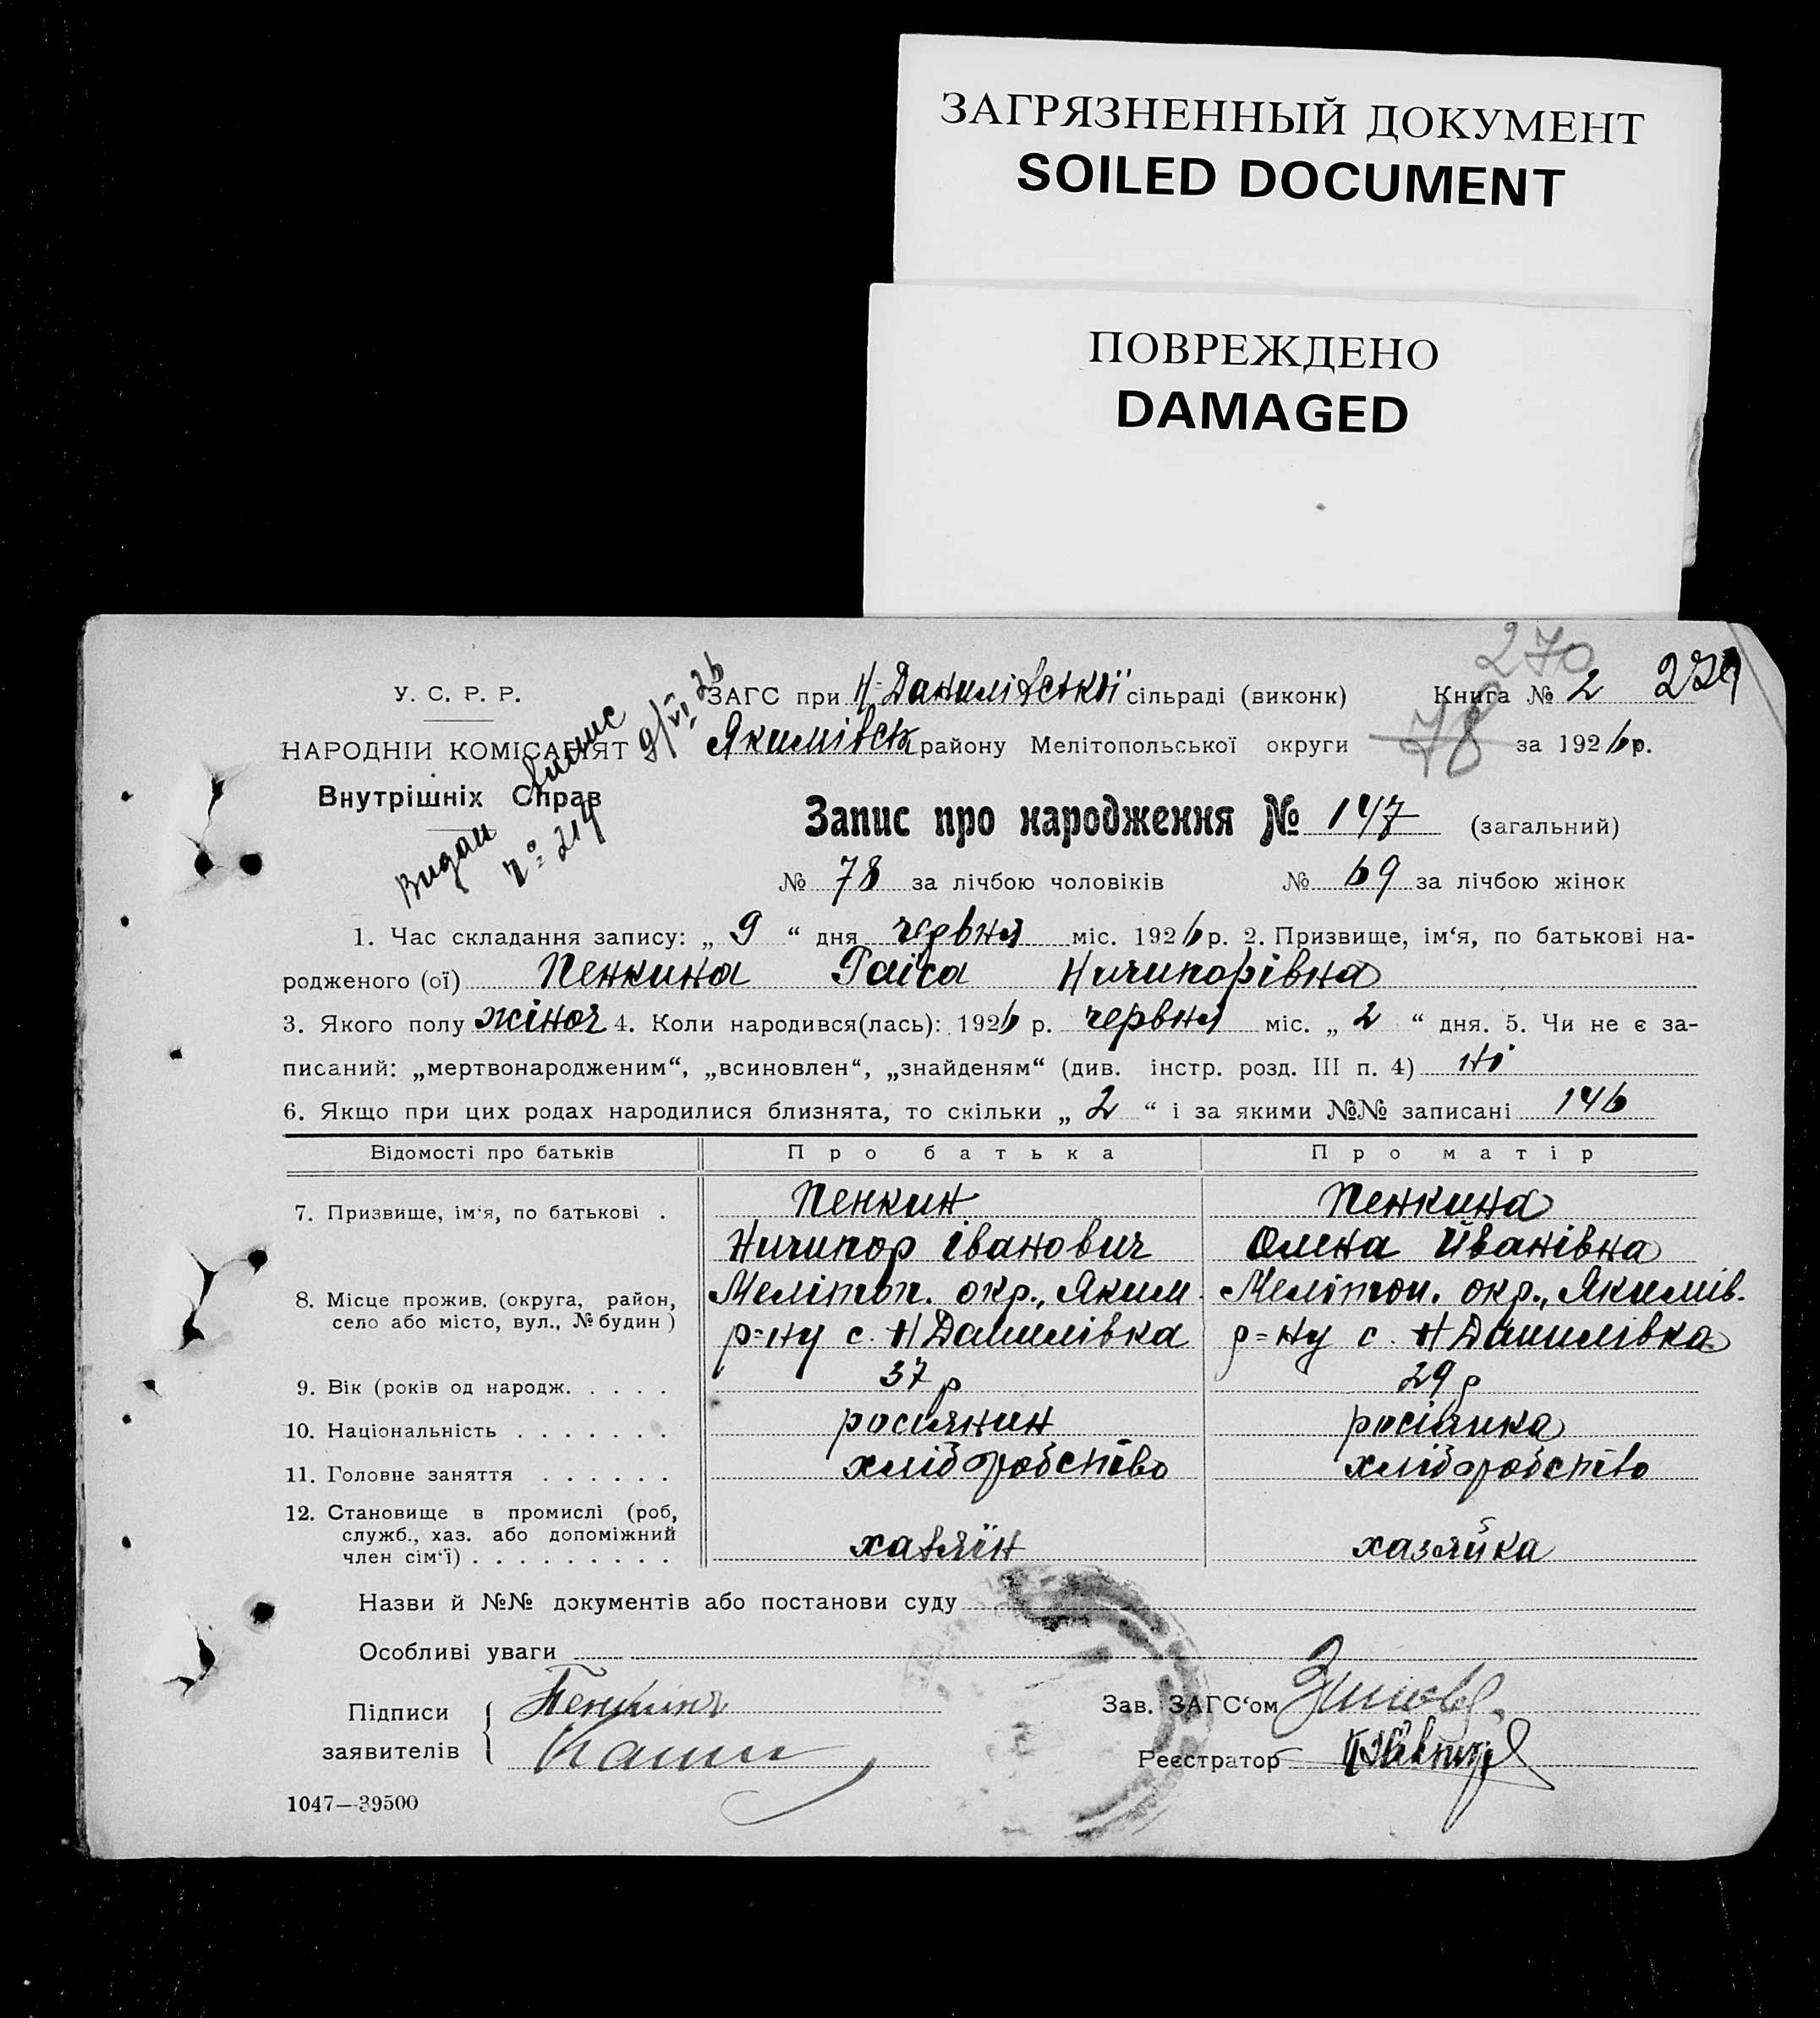 ЗАГРЯЗНЕННЫЙ ДОКУМЕНТ
SOILED DOCUMENT
ПОВРЕЖДЕНО
DAMAGED
270
У. С. Р. Р.
ЗАГС при Н-Данилівській сільраді (виконк) Книга № 2
НАРОДНІЙ КОМІСАРІЯТ
Якимівськ району Мелітопольської округи 78 за 1926 р.
Внутрішніх Справ
Видан выпис 9/VI 26
№ 214
Запис про народження № 147 (загальний)
№ 78 за лічбою чоловіків № 69 за лічбою жінок
1. Час складання запису: „ 9 “ дня червня міс. 1926 р. 2. Призвище, ім‘я, по батькові на-
родженого (ої) Пенкина Раіса Ничипорівна
3. Якого полу жіноч 4. Коли народився(лась): 1926 р. червня міс. „ 2 “ дня. 5. Чи не є за-
писаний: „мертвонародженим“, „всиновлен“, „знайденям“ (див. інстр. розд. III п. 4) ні
6. Якщо при цих родах народилися близнята, то скільки „ 2 “ і за якими №№ записані 146
Відомості про батьків Про батька Про матір
7. Призвище, ім‘я, по батькові . Пенкин Пенкина
Ничипор Іванович Олена Иванівна
8. Місце прожив. (округа, район, село або місто, вул., № будин) Мелітоп. окр., Яким. Мелітоп. окр., Якимів.
р=ну с. Н Данилівка р=ну с. Н Данилівка
9. Вік (років од народж. . . . . 37 р 29 р
10. Національність . . . . . . . росіянин росіянка
11. Головне заняття . . . . . . хліборобство хліборобство
12. Становище в промислі (роб,
служб., хаз. або допоміжний
член сім‘ї) . . . . . . . . . хазяїн хазяйка
Назви й №№ документів або постанови суду
Особливі уваги
Підписи
заявителів
Зав. ЗАГС‘ом
Реєстратор
1047—39500